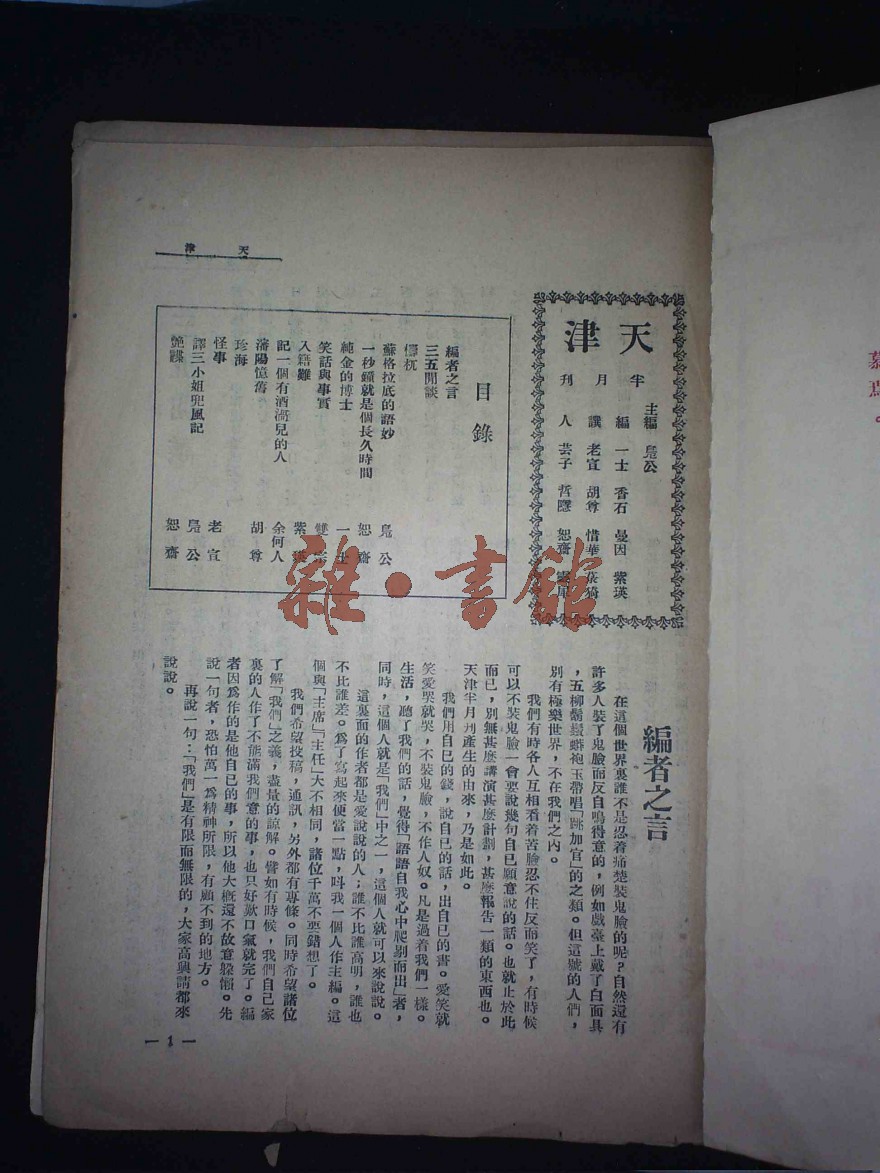 天津
天津
半月刊
主編 鳧公
編 一士 香石 曼因 紫瑛
譔 老宣 胡尊 惜華
人 芸子 哲隱 恕齋
目錄
編者之言
三五閒談 鳧公
檮杌
蘇格拉底的語妙 恕齋
一秒鐘就是個長久時間
純金的博士 一士
笑話與事實
入籍難 紫瑛
記一個有酒窩兒的人 余何人
瀋陽憶舊 胡尊
珍海
怪事 老宣
譯三小姐兜風記 鳧公
恕齋
雜·書館
編者之言
在這個世界裏誰不是忍着痛楚裝鬼臉的呢?自然還有
許多人裝了鬼臉而反自鳴得意的,例如戲臺上戴了白面具
,五柳鬚蟒袍玉帶唱「跳加官」的之類。但這號的人們,
別有極樂世界,不在我們之內。
我們有時各人互相看着苦臉忍不住反而笑了,有時候
可以不裝鬼臉一會要說幾句自已願意說的話。也就止於此
而已,別無甚麼講演甚麼計劃,甚麼報告一類的東西也。
天津半月刊產生的由來,乃是如此。
我們用自已的錢,說自已的話,出自已的書。愛笑就
笑愛哭就哭,不裝鬼臉,不作人奴。凡是過着我們一樣。
生活,聽了我們的話,覺得「語語自我心中爬剔而出」者,
同時,這個人就是「我們」中之一,這個人就可以來說說。
這裏面的作者都是愛說說的人;誰不比誰高明,誰也
不比誰差。爲了寫起來便當一點,呌我一個人作主編。這
個與「主席」「主任」大不相同,諸位千萬不要錯想了。
我們希望投稿,通訊,另外都有專條。同時希望諸位
了解「我們」之義,盡量的諒解。譬如有時候,我們自己家
裏的人作了不能滿我們意的事,也只好歎口氣就完了。編
者因爲作的是他自已的事,所以他大概還不故意躲懶。先
說一句者,恐怕萬一爲精神所限,有顧不到的地方。
再說一句:「我們」是有限而無限的,大家高興請都來
說說。
— 1 —